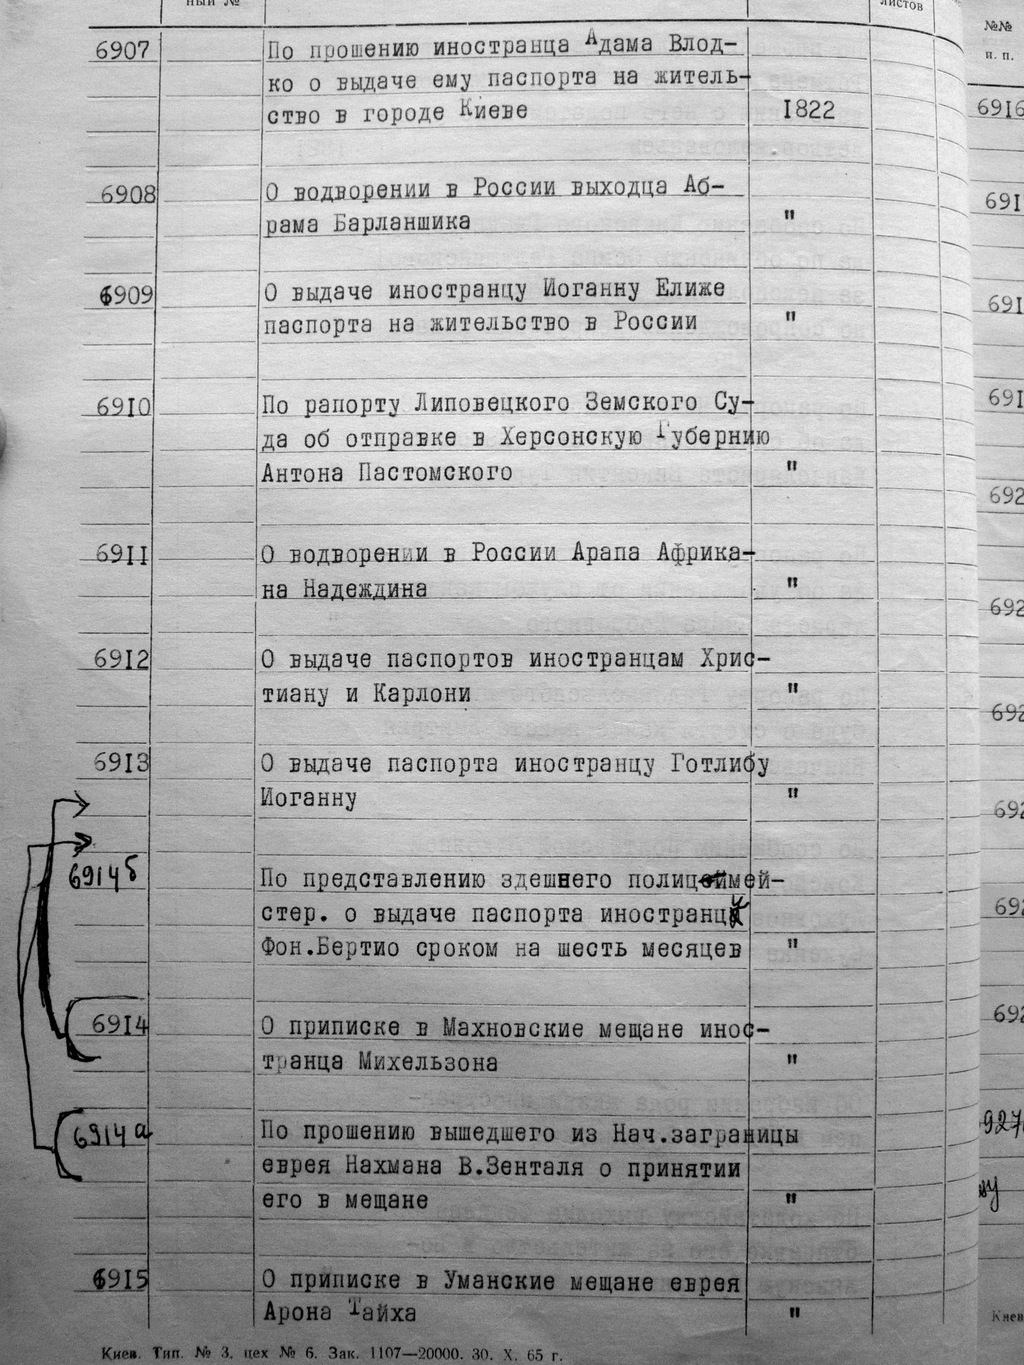 ный №
листов
6907 По прошению иностранца Адама Влод-
ко о выдаче ему паспорта на житель-
ство в городе Киеве 1822
6908 О водворении в России выходца Аб-
рама Барланшика "
6909 О выдаче иностранцу Иоганну Елиже
паспорта на жительство в России "
6910 По рапорту Липовецкого Земского Су-
да об отправке в Херсонскую Губернию
Антона Пастомского "
6911 О водворении в России Арапа Африка-
на Надеждина "
6912 О выдаче паспортов иностранцам Хрис-
тиану и Карлони "
6913 О выдаче паспорта иностранцу Готлибу
Иоганну "
6914б По представлению здешнего полицмей-
стер. о выдаче паспорта иностранцу
Фон.Бертио сроком на шесть месяцев "
6914 О приписке в Махновские мещане инос-
транца Михельзона "
6914а По прошению вышедшего из Нач.заграницы
еврея Нахмана В.Зенталя о принятии
его в мещане "
6915 О приписке в Уманские мещане еврея
Арона Тайха "
Киев. Тип. № 3, цех № 6. Зак. 1107—20000. 30. X. 65 г.
№№
п. п.
6916
691
691
691
692
692
692
692
692
692
927
Киев